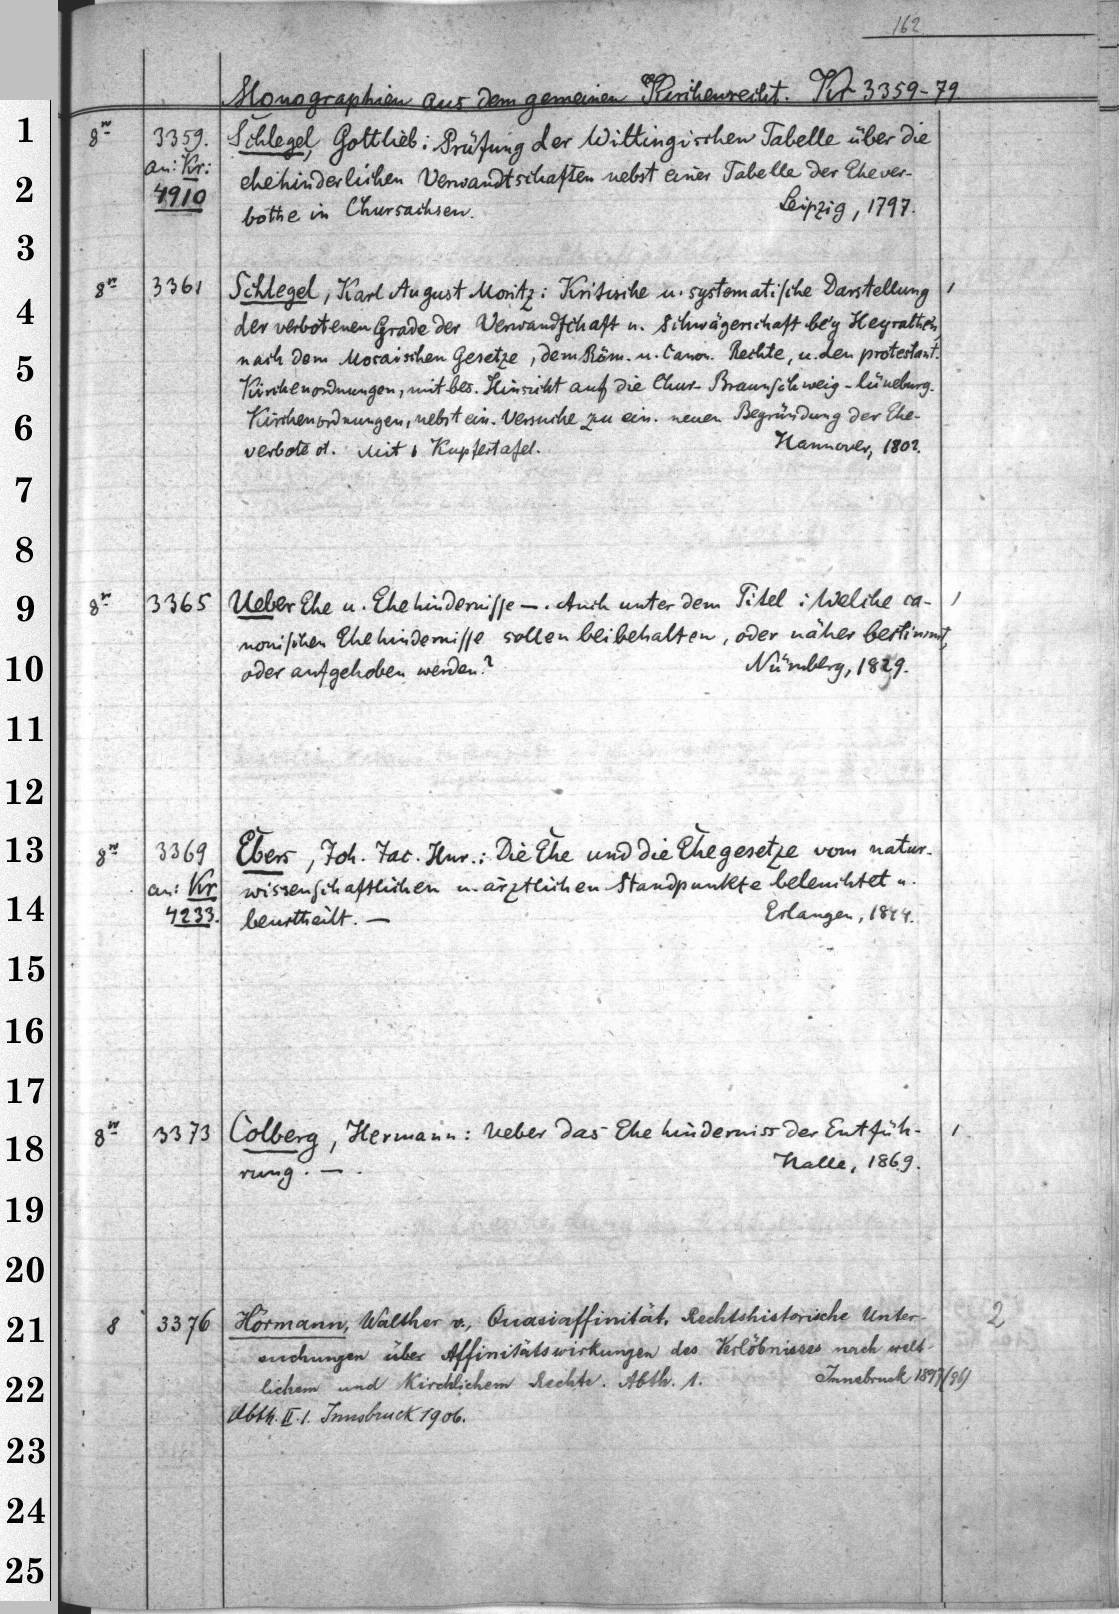 162
Monographien aus dem gemeinen Kirchenrecht. Kr 3359-79
8º 3359. Schlegel, Gottlieb: Prüfung der Wittingischen Tabelle über die
an: Kr: ehehinderlichen Verwandtschaften nebst einer Tabelle der Ehever-
4910 bothe in Chursachsen. Leipzig, 1797.
8º 3361 Schlegel, Karl August Moritz: Kritische u. systematische Darstellung 1
der verbotenen Grade der Verwandschaft u. Schwägerschaft bey Heyrathen,
nach dem Mosaischen Gesetze, dem Röm. u. Canon. Rechte, u. den protestant.
Kirchenordnungen, mit bes. Hinsicht auf die Chur-Braunschweig-lüneburg.
Kirchenordnungen, nebst ein. Versuche zu ein. neuen Begründung der Ehe-
verbote. Mit 1 Kupfertafel. Hannover, 1802.
8º 3365 Ueber Ehe u. Ehehindernisse —. Auch unter dem Titel: Welche ca- 1
nonischen Ehehindernisse sollen beibehalten, oder näher bestimmt,
oder aufgehoben werden? Nürnberg, 1829.
8º 3369 Ebers, Joh. Jac. Hnr.: Die Ehe und die Ehegesetze vom natur-
an: Kr wissenschaftlichen u. ärztlichen Standpunkte beleuchtet u.
4233. beurtheilt. — Erlangen, 1844.
8º 3373 Colberg, Hermann: Ueber das Ehehinderniss der Entfüh- 1
rung. —. Halle, 1869.
8 3376 Hörmann, Walther v., Quasiaffinität. Rechtshistorische Unter- 2
suchungen über Affinitätswirkungen des Verlöbnisses nach welt-
lichem und Kirchlichem Rechte. Abth. 1. Innsbruck 1897(96)
Abth. II.1. Innsbruck 1906.
1
2
3
4
5
6
7
8
9
10
11
12
13
14
15
16
17
18
19
20
21
22
23
24
25